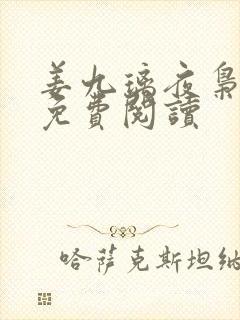 姜九璃夜梟
免費閱讀
哈薩克斯坦納